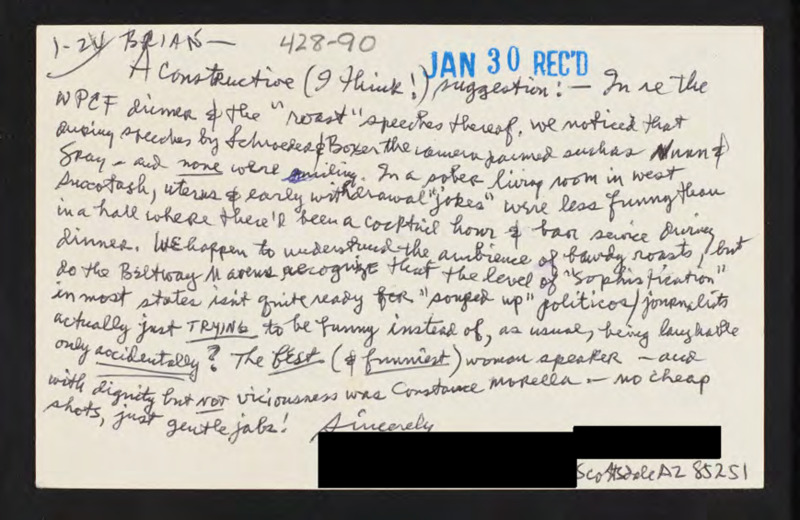 1-24 BRIAN — 428-90
JAN 30 REC'D
A Constructive (I think!) suggestion: — In re the
WPCF dinner & the "roast" speeches thereof, we noticed that
during speeches by Schroeder & Boxer the camera panned such as Nunn &
Gray — and none were smiling. In a sober living room in west
Succotash, uterus & early withdrawal "jokes" were less funny than
in a hall where there'd been a cocktail hour & bar service during
dinner. WE happen to understand the ambience of bawdy roasts, but
do the Beltway Mavens recognize that the level of "Sophistication"
in most states isn't quite ready for "souped up" politicos/journalists
actually just TRYING to be funny instead of, as usual, being laughable
only accidentally? The best (& funniest) woman speaker — and
with dignity but not viciousness was Constance Morella — no cheap
shots, just gentle jabs! Sincerely
Scottsdale AZ 85251